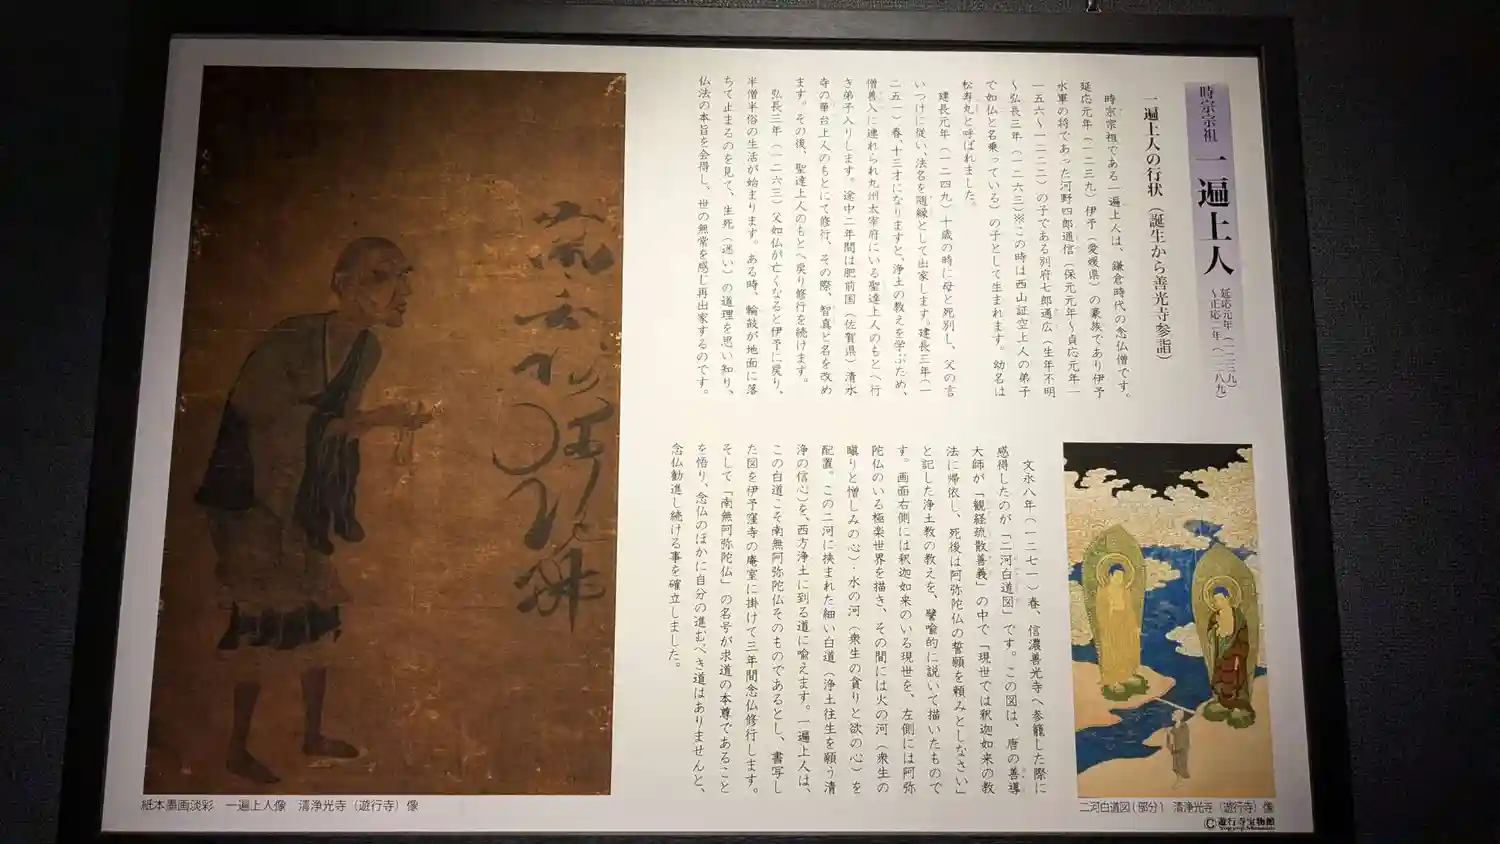 時宗宗祖 一遍上人 延応元年(一二三九)
~正応二年(一二八九)
一遍上人の行状(誕生から善光寺参詣)
時宗宗祖である一遍上人は、鎌倉時代の念仏僧です。
延応元年(一二三九)伊予(愛媛県)の豪族であり伊予
水軍の将であった河野四郎通信(保元元年~貞応元年一
一五六~一二二二)の子である別府七郎通広(生年不明
~弘長三年(一二六三)※この時は西山証空上人の弟子
で如仏と名乗っている)の子として生まれます。幼名は
松寿丸と呼ばれました。
建長元年(一二四九)十歳の時に母と死別し、父の言
いつけに従い、法名を随縁として出家します。建長三年(一
二五一)春、十三才になりますと、浄土の教えを学ぶため、
僧善入に連れられ九州太宰府にいる聖達上人のもとへ行
き弟子入りします。途中二年間は肥前国(佐賀県)清水
寺の華台上人のもとにて修行、その際、智真と名を改め
ます。その後、聖達上人のもとへ戻り修行を続けます。
弘長三年(一二六三)父如仏が亡くなると伊予に戻り、
半僧半俗の生活が始まります。ある時、輪鼓が地面に落
ちて止まるのを見て、生死(迷い)の道理を思い知り、
仏法の本旨を会得し、世の無常を感じ再出家するのです。
文永八年(一二七一)春、信濃善光寺へ参籠した際に
感得したのが「二河白道図」です。この図は、唐の善導
大師が「観経疏散善義」の中で「現世では釈迦如来の教
法に帰依し、死後は阿弥陀仏の誓願を頼みとしなさい」
と記した浄土教の教えを、譬喩的に説いて描いたもので
す。画面右側には釈迦如来のいる現世を、左側には阿弥
陀仏のいる極楽世界を描き、その間には火の河(衆生の
瞋りと憎しみの心)・水の河(衆生の貪りと欲の心)を
配置。この二河に挟まれた細い白道(浄土往生を願う清
浄の信心)を、西方浄土に到る道に喩えます。一遍上人は、
この白道こそ南無阿弥陀仏そのものであるとし、書写し
た図を伊予窪寺の庵室に掛けて三年間念仏修行します。
そして「南無阿弥陀仏」の名号が求道の本尊であること
を悟り、念仏のほかに自分の進むべき道はありませんと、
念仏勧進し続ける事を確立しました。
南無阿弥陀佛
紙本墨画淡彩 一遍上人像 清浄光寺(遊行寺)像
二河白道図(部分) 清浄光寺(遊行寺)像
©遊行寺宝物館